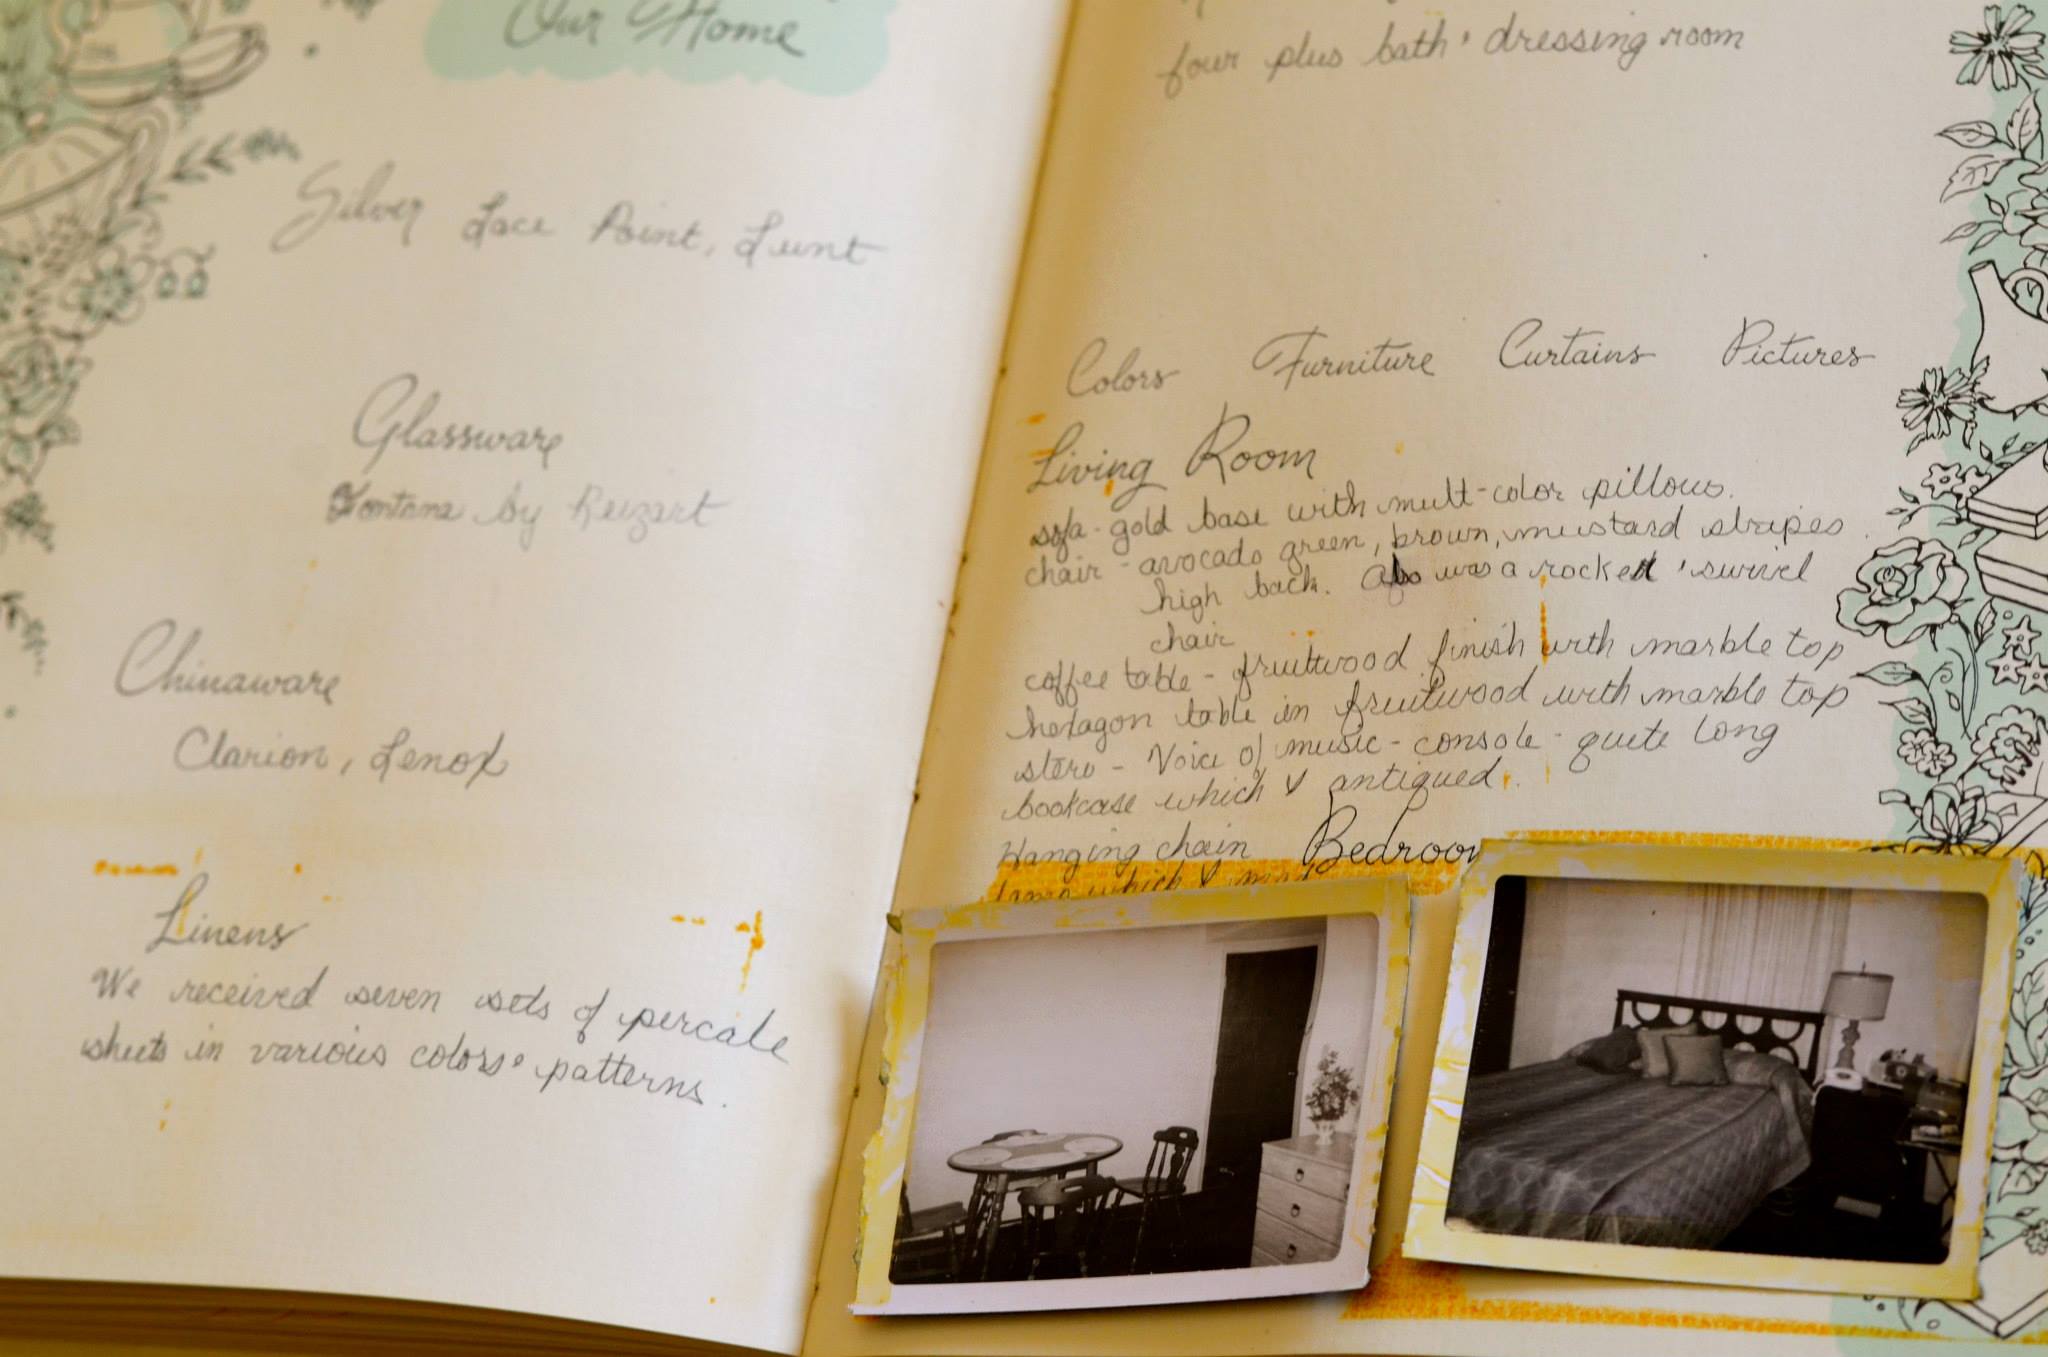 Our Home
Silver Lace Point, Lunt
Glassware
Fontana by Reizart
Chinaware
Clarion, Lenox
Linens
We received seven sets of percale
sheets in various colors & patterns.
four plus bath & dressing room
Colors Furniture Curtains Pictures
Living Room
sofa - gold base with mult-color pillows.
chair - avocado green, brown, mustard stripes.
high back. Also was a rocker & swivel
chair
coffee table - fruitwood finish with marble top
hexagon table in fruitwood with marble top
stero - Voice of music - console - quite long
bookcase which I antiqued.
Hanging chain Bedroom
lamp which I made